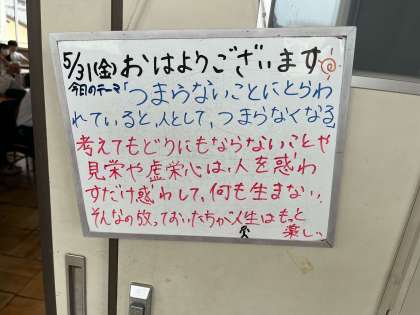 5/31(金)おはようございます
今日のテーマ「つまらないことにとらわ
れていると、人として、つまらなくなる」
考えてもどうにもならないことや
見栄や虚栄心は、人を惑わ
すだけ惑わして、何も生まない。
そんなの放っておいたらが人生はもっと
楽しい